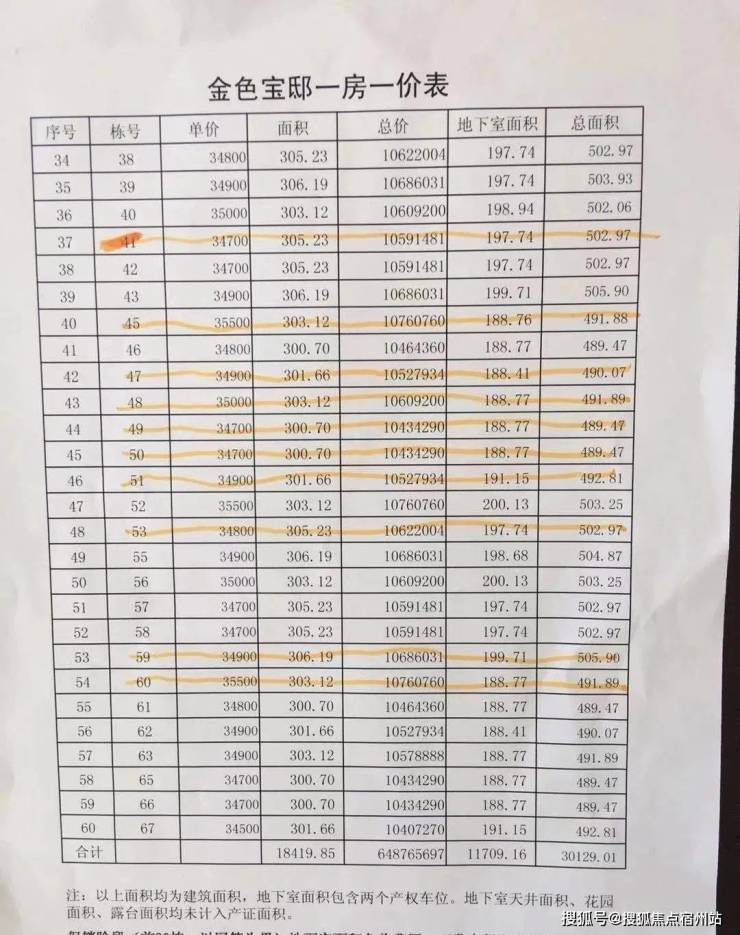 金色宝邸一房一价表
序号 栋号 单价 面积 总价 地下室面积 总面积
34 38 34800 305.23 10622004 197.74 502.97
35 39 34900 306.19 10686031 197.74 503.93
36 40 35000 303.12 10609200 198.94 502.06
37 41 34700 305.23 10591481 197.74 502.97
38 42 34700 305.23 10591481 197.74 502.97
39 43 34900 306.19 10686031 199.71 505.90
40 45 35500 303.12 10760760 188.76 491.88
41 46 34800 300.70 10464360 188.77 489.47
42 47 34900 301.66 10527934 188.41 490.07
43 48 35000 303.12 10609200 188.77 491.89
44 49 34700 300.70 10434290 188.77 489.47
45 50 34700 300.70 10434290 188.77 489.47
46 51 34900 301.66 10527934 191.15 492.81
47 52 35500 303.12 10760760 200.13 503.25
48 53 34800 305.23 10622004 197.74 502.97
49 55 34900 306.19 10686031 198.68 504.87
50 56 35000 303.12 10609200 200.13 503.25
51 57 34700 305.23 10591481 197.74 502.97
52 58 34700 305.23 10591481 197.74 502.97
53 59 34900 306.19 10686031 199.71 505.90
54 60 35500 303.12 10760760 188.77 491.89
55 61 34800 300.70 10464360 188.77 489.47
56 62 34900 301.66 10527934 188.41 490.07
57 63 34900 303.12 10578888 188.77 491.89
58 65 34700 300.70 10434290 188.77 489.47
59 66 34700 300.70 10434290 188.77 489.47
60 67 34500 301.66 10407270 191.15 492.81
合计 18419.85 648765697 11709.16 30129.01
注：以上面积均为建筑面积，地下室面积包含两个产权车位。地下室天井面积、花园
面积、露台面积均未计入产证面积。
搜狐号@搜狐焦点宿州站